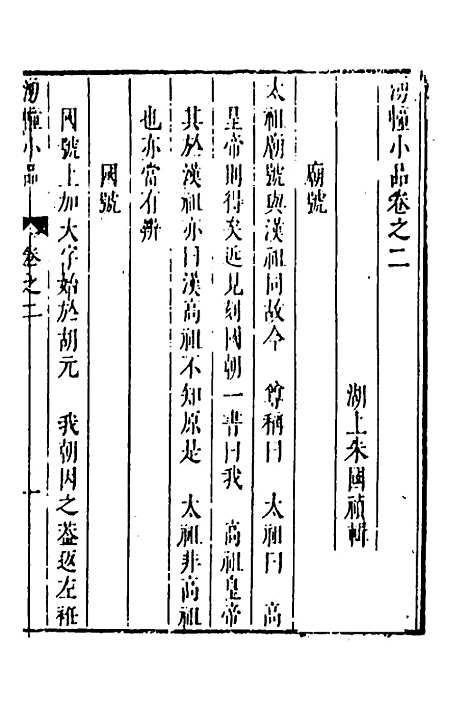 湧幢小品卷之二
湖上朱國禎輯
廟號
太祖廟號與漢祖同故今 尊稱曰 太祖曰 高
皇帝則得矣近見刻國朝一書曰我 高祖皇帝
其於漢祖亦曰漢高祖不知原是 太祖非高祖
也亦當有辨
國號
國號上加大字始於胡元 我朝因之葢返左袵
湧幢小品 卷之二 一